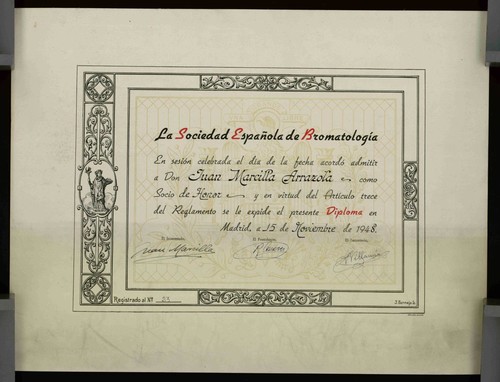 La Sociedad Española de Bromatología
En sesión celebrada el día de la fecha acordó admitir
a Don Juan Marcilla Arrazola como
Socio de Honor y en virtud del Artículo trece
del Reglamento se le expide el presente Diploma en
Madrid, a 15 de Noviembre de 1948.
Juan Marcilla
Registrado al Nº